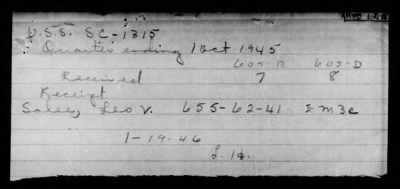 U.S.S. SC-1315
Quarter ending 1 Oct 1945
605-B 605-D
Received 7 8
Receipt
Leo V. 655-62-41 EM3c
1-19-46